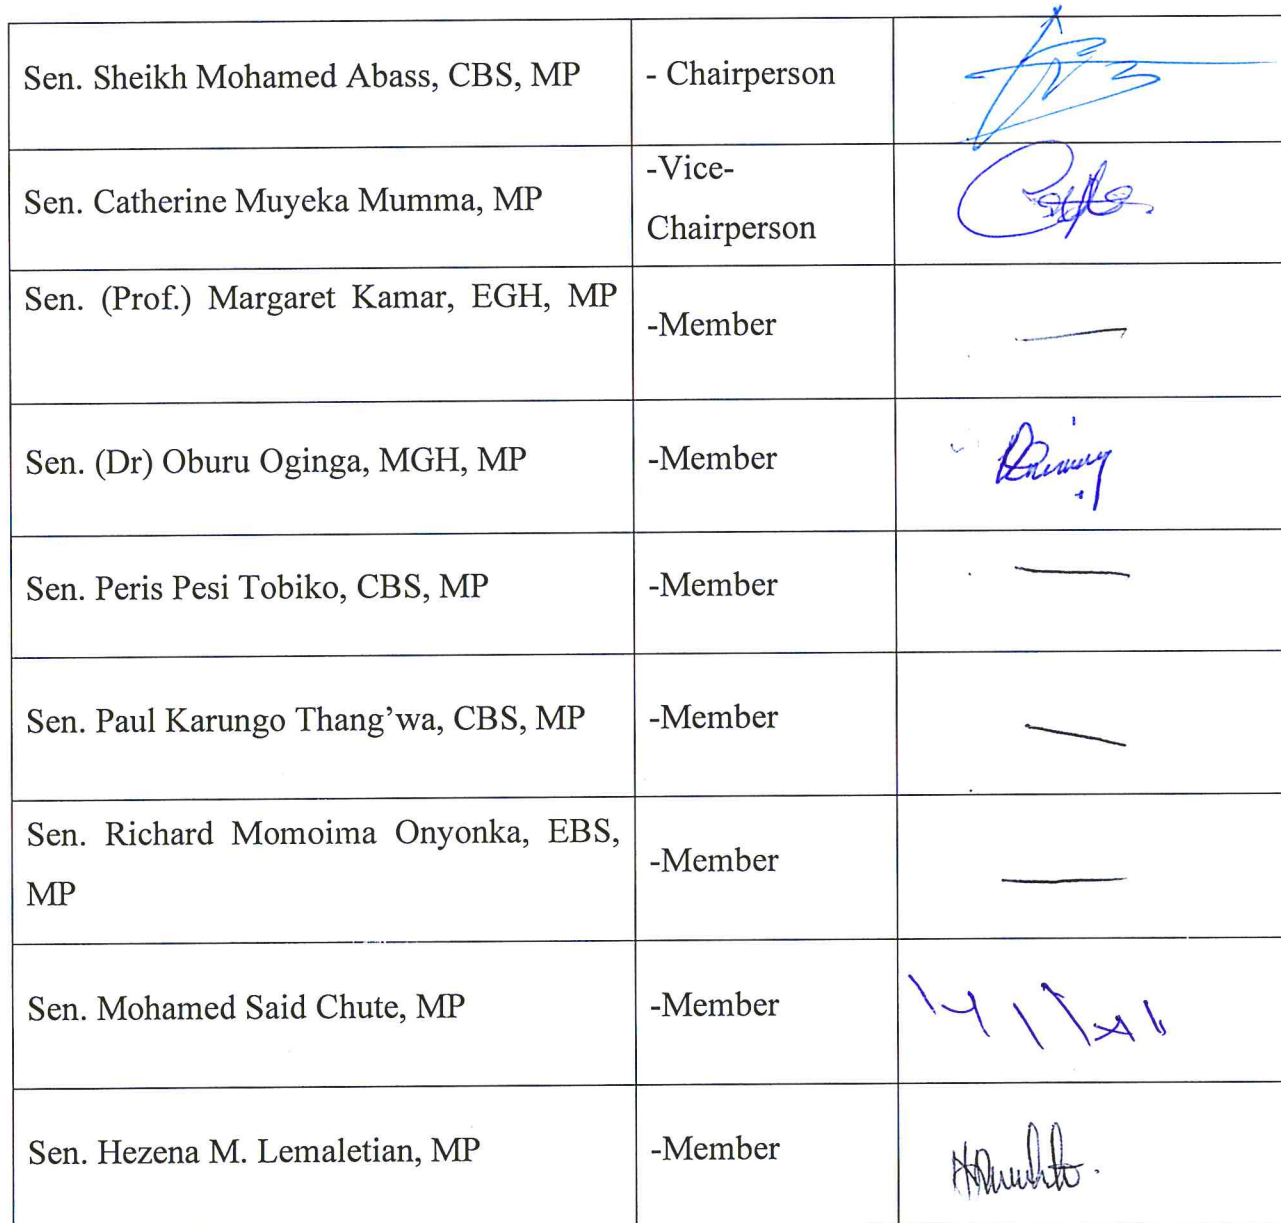 Sen. Sheikh Mohamed Abass, CBS, MP
- Chairperson
Sen. Catherine Muyeka Mumma, MP
-Vice-
Chairperson
Sen. (Prof.) Margaret Kamar, EGH, MP
-Member
Sen. (Dr) Oburu Oginga, MGH, MP
-Member
Sen. Peris Pesi Tobiko, CBS, MP
-Member
Sen. Paul Karungo Thang’wa, CBS, MP
-Member
Sen. Richard Momoima Onyonka, EBS,
MP
-Member
Sen. Mohamed Said Chute, MP
-Member
Sen. Hezena M. Lemaletian, MP
-Member